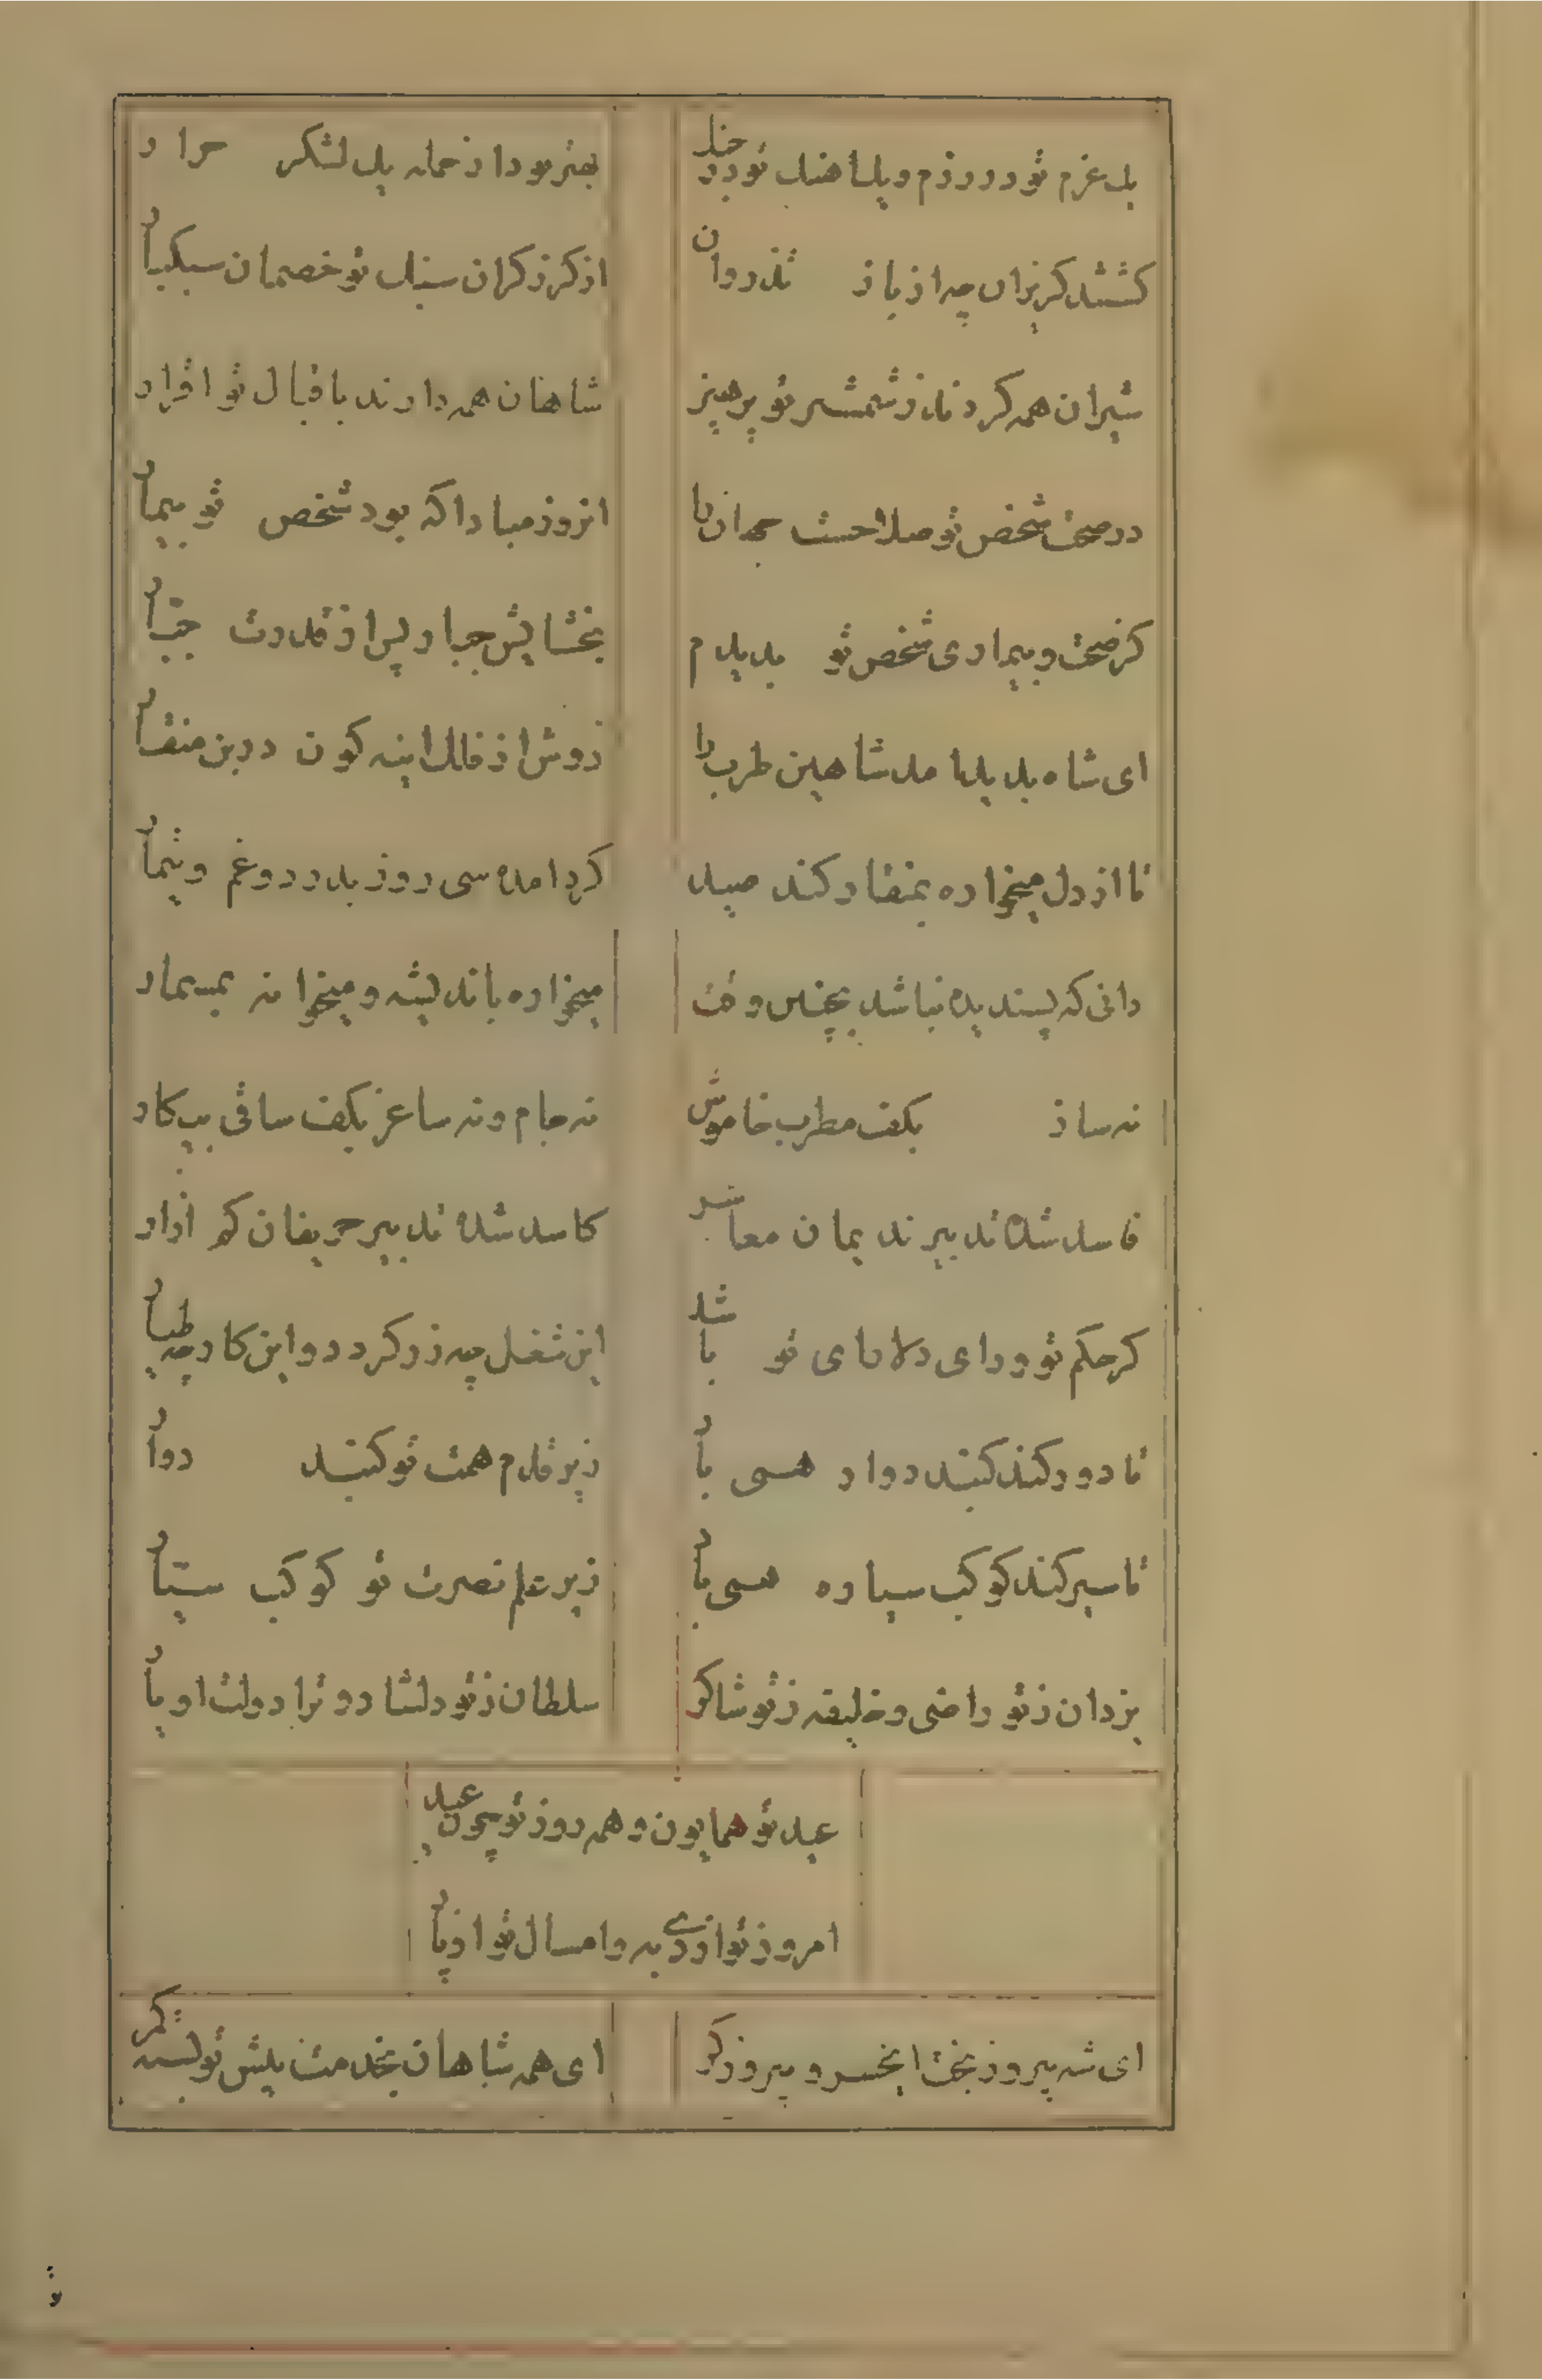 یک عزم تو در رزم و یک آهنگ تو در جنگ
بهتر بود از خمله یک لشکر جرار
گشتند گریزان چه از باز تذروان
از گرز گران سنگ تو خصمان سبکبار
شیران همه کردند ز شمشیر تو پرهیز
شاهان همه دارند باقبال تو اقرار
در صحت شخص تو صلاحست جهان را
آنروز مبادا که بود شخص تو بیمار
کز صحت و بیماری شخص تو بدیدم
بخشایش جبار پس از قدرت جبار
ای شاه بدید آمد شاهین طرب را
دوش از فلک آینه کون زرین منقار
تا از دل میخواره بمنقار کند صید
کرد آمده سی روز بدر درد و غم و تیمار
دانی که پسندیده نباشد بچنین وقت
میخواره باندیشه و میخوانه بمسمار
نه ساز بکف مطرب خاموش
نه جام و نه ساغر بکف ساقی بیکار
فاسد شده تدبیر ندیمان معاشر
کاسد شده تدبیر حریفان کم آزار
گر حکم تو و رای دلارای تو باشد
این شغل چه زر گردد و این کار چه طیار
تا دور کند گنبد دوار همی باد
زیر قدم همت تو گنبد دوار
تا سیر کند کوکب سیاره همی باد
زیر علم نصرت تو کوکب سیار
یزدان ز تو راضی و خلیفه ز تو شاکر
سلطان ز تو دلشاد و ترا دولت او یار
عید تو همایون و همه روز تو چون عید
امروز تو از دی به و امسال تو از پار
ای شه پیروز بخت ای خسرو پیروزگر
ای همه شاهان بخدمت پیش تو بسته کمر